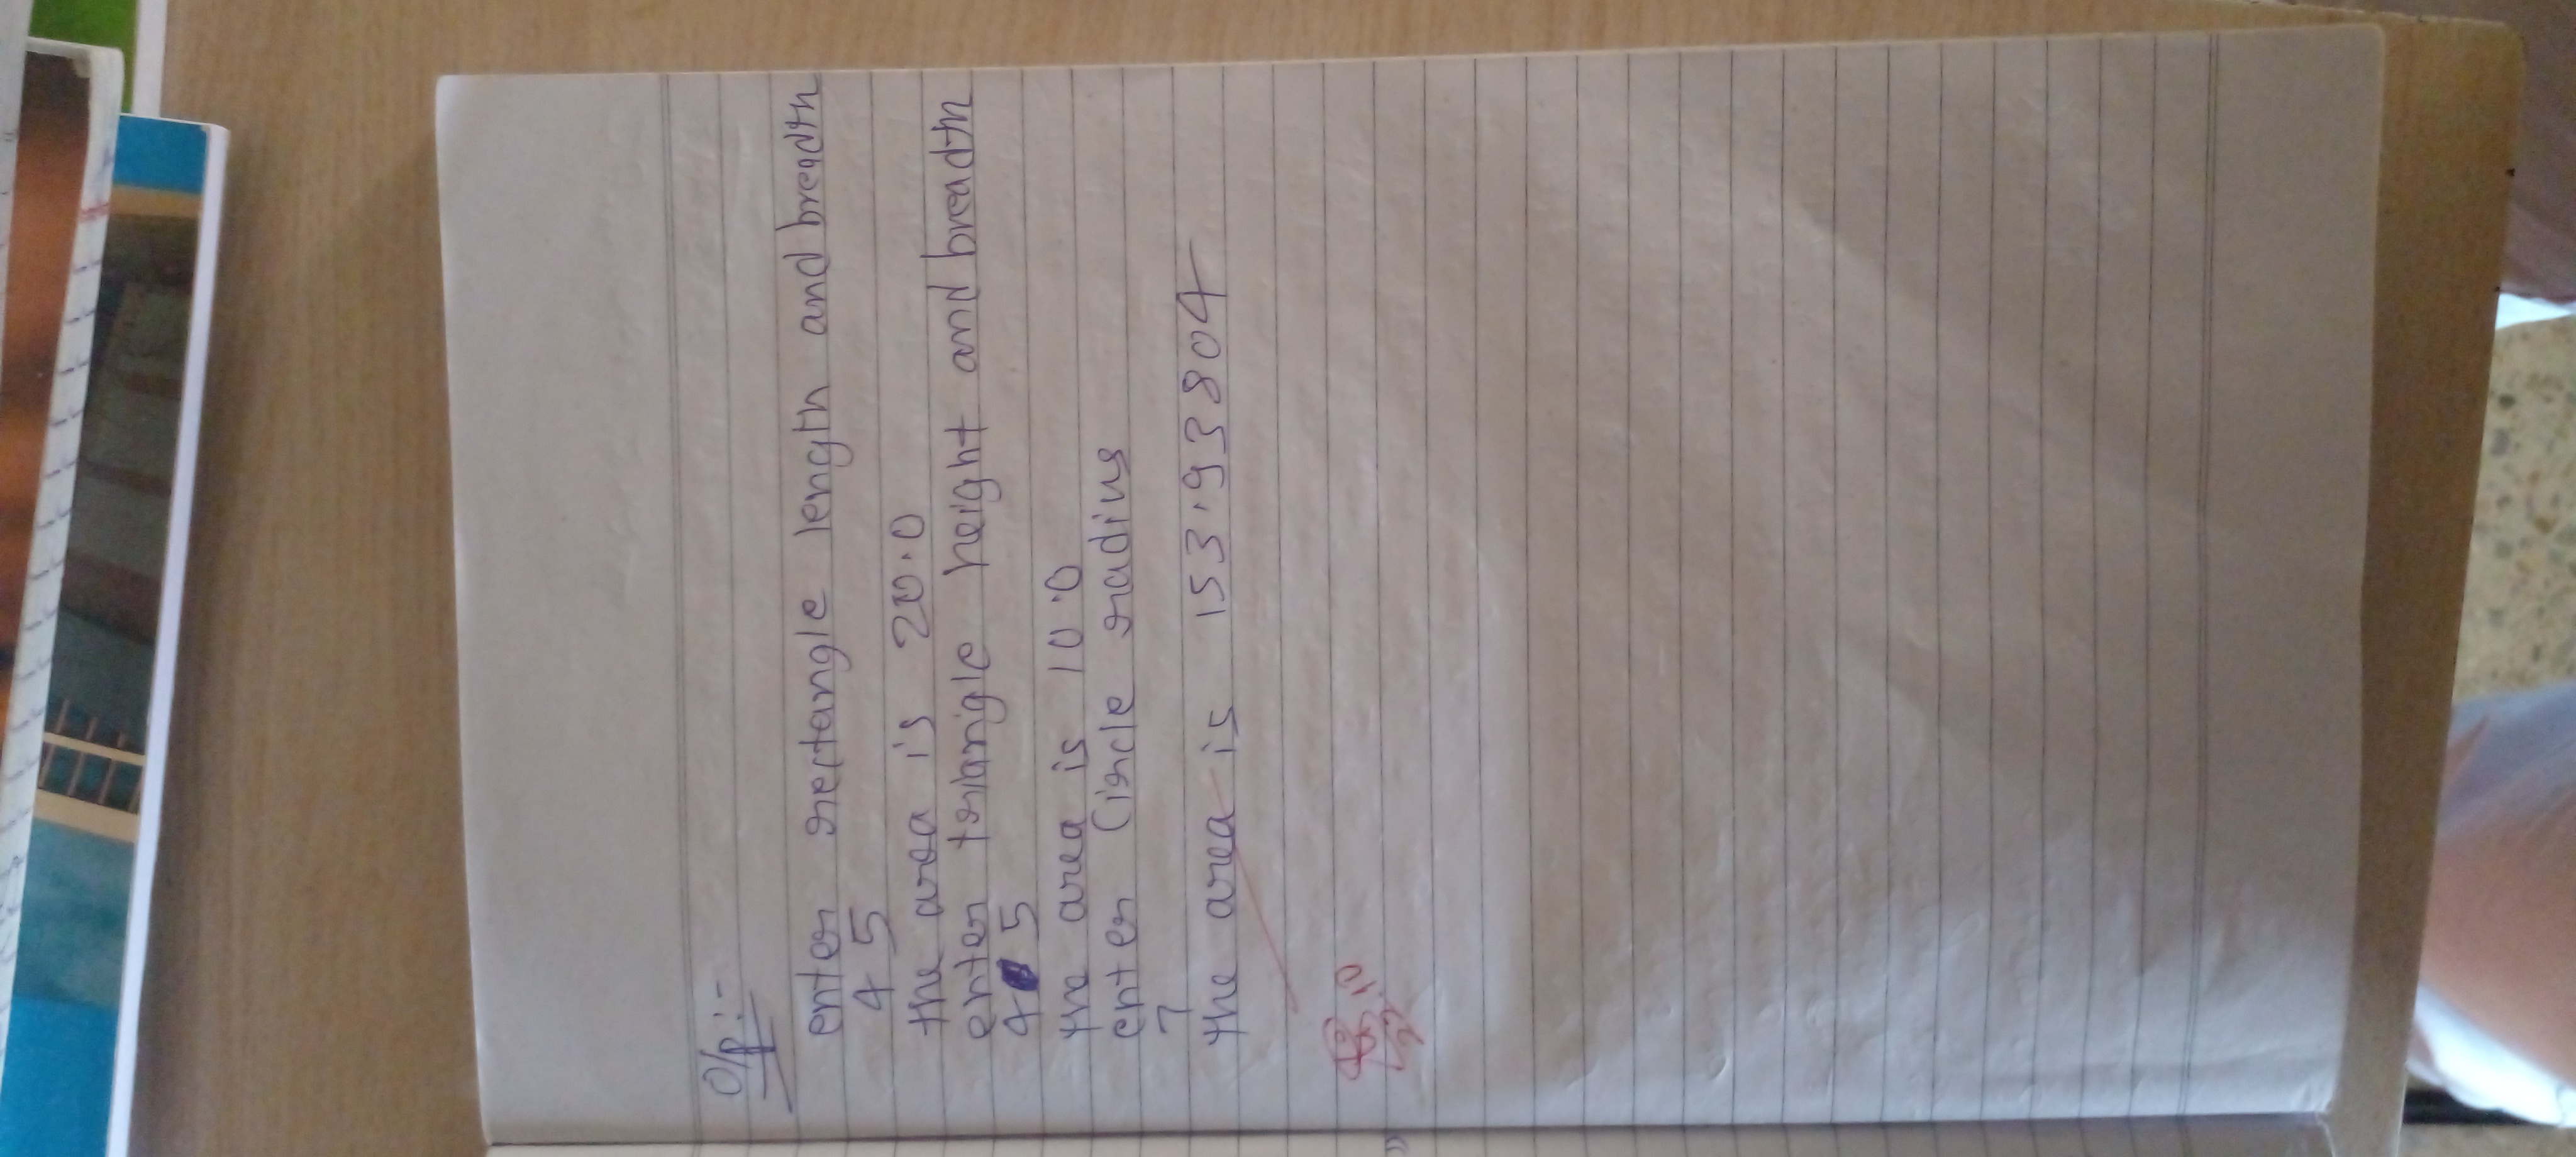 O/P :-
enter rectangle length and breadth
4 5
the area is 20.0
enter triangle height and breadth
4 5
the area is 10.0
enter Circle radius
7
the area is 153.93804